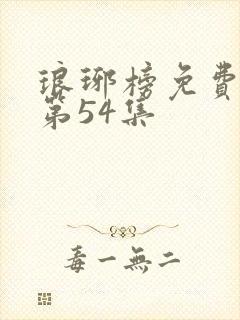 琅琊榜免費
第54集
毒一無二